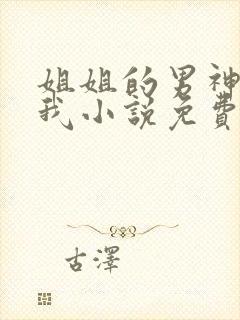 姐姐的男神
我小説免費
古澤